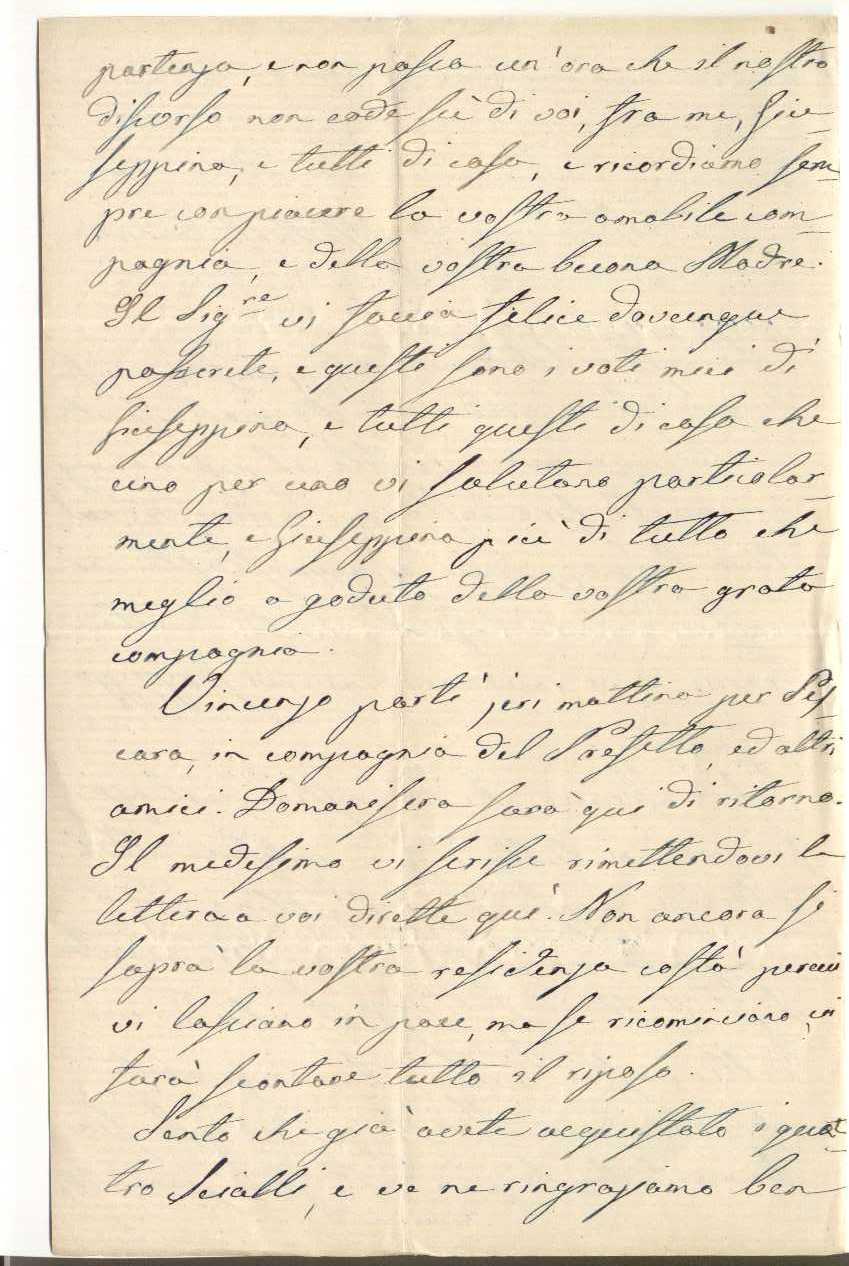 partenza, e non passa un'ora che il nostro
discorso non cade sù di voi, fra me, Giu-
seppina, e tutti di casa, e ricordiamo sem-
pre con piacere la vostra amabile com-
pagnia, e della vostra buona Madre.
Il Sig.re vi faccia felice dovunque
passerete, e questi sono i voti miei di
Giuseppina, e tutti questi di casa che
uno per uno vi salutano particolar-
mente, e Giuseppina più di tutto che
meglio a goduto della vostra grata
compagnia.
Vincenzo partì jeri mattina per Pes-
cara, in compagnia del Prefetto, ed altri
amici. Domani sera sarà qui di ritorno.
Il medesimo vi scrisse rimettendovi le
lettere a voi dirette quì. Non ancora si
saprà la vostra residenza costà perciò
vi lasciano in pace, ma se ricominciano, vi
farà scontare tutto il riposo.
Sento che già avete acquistato i quat-
tro Scialli, e ve ne ringraziamo ben